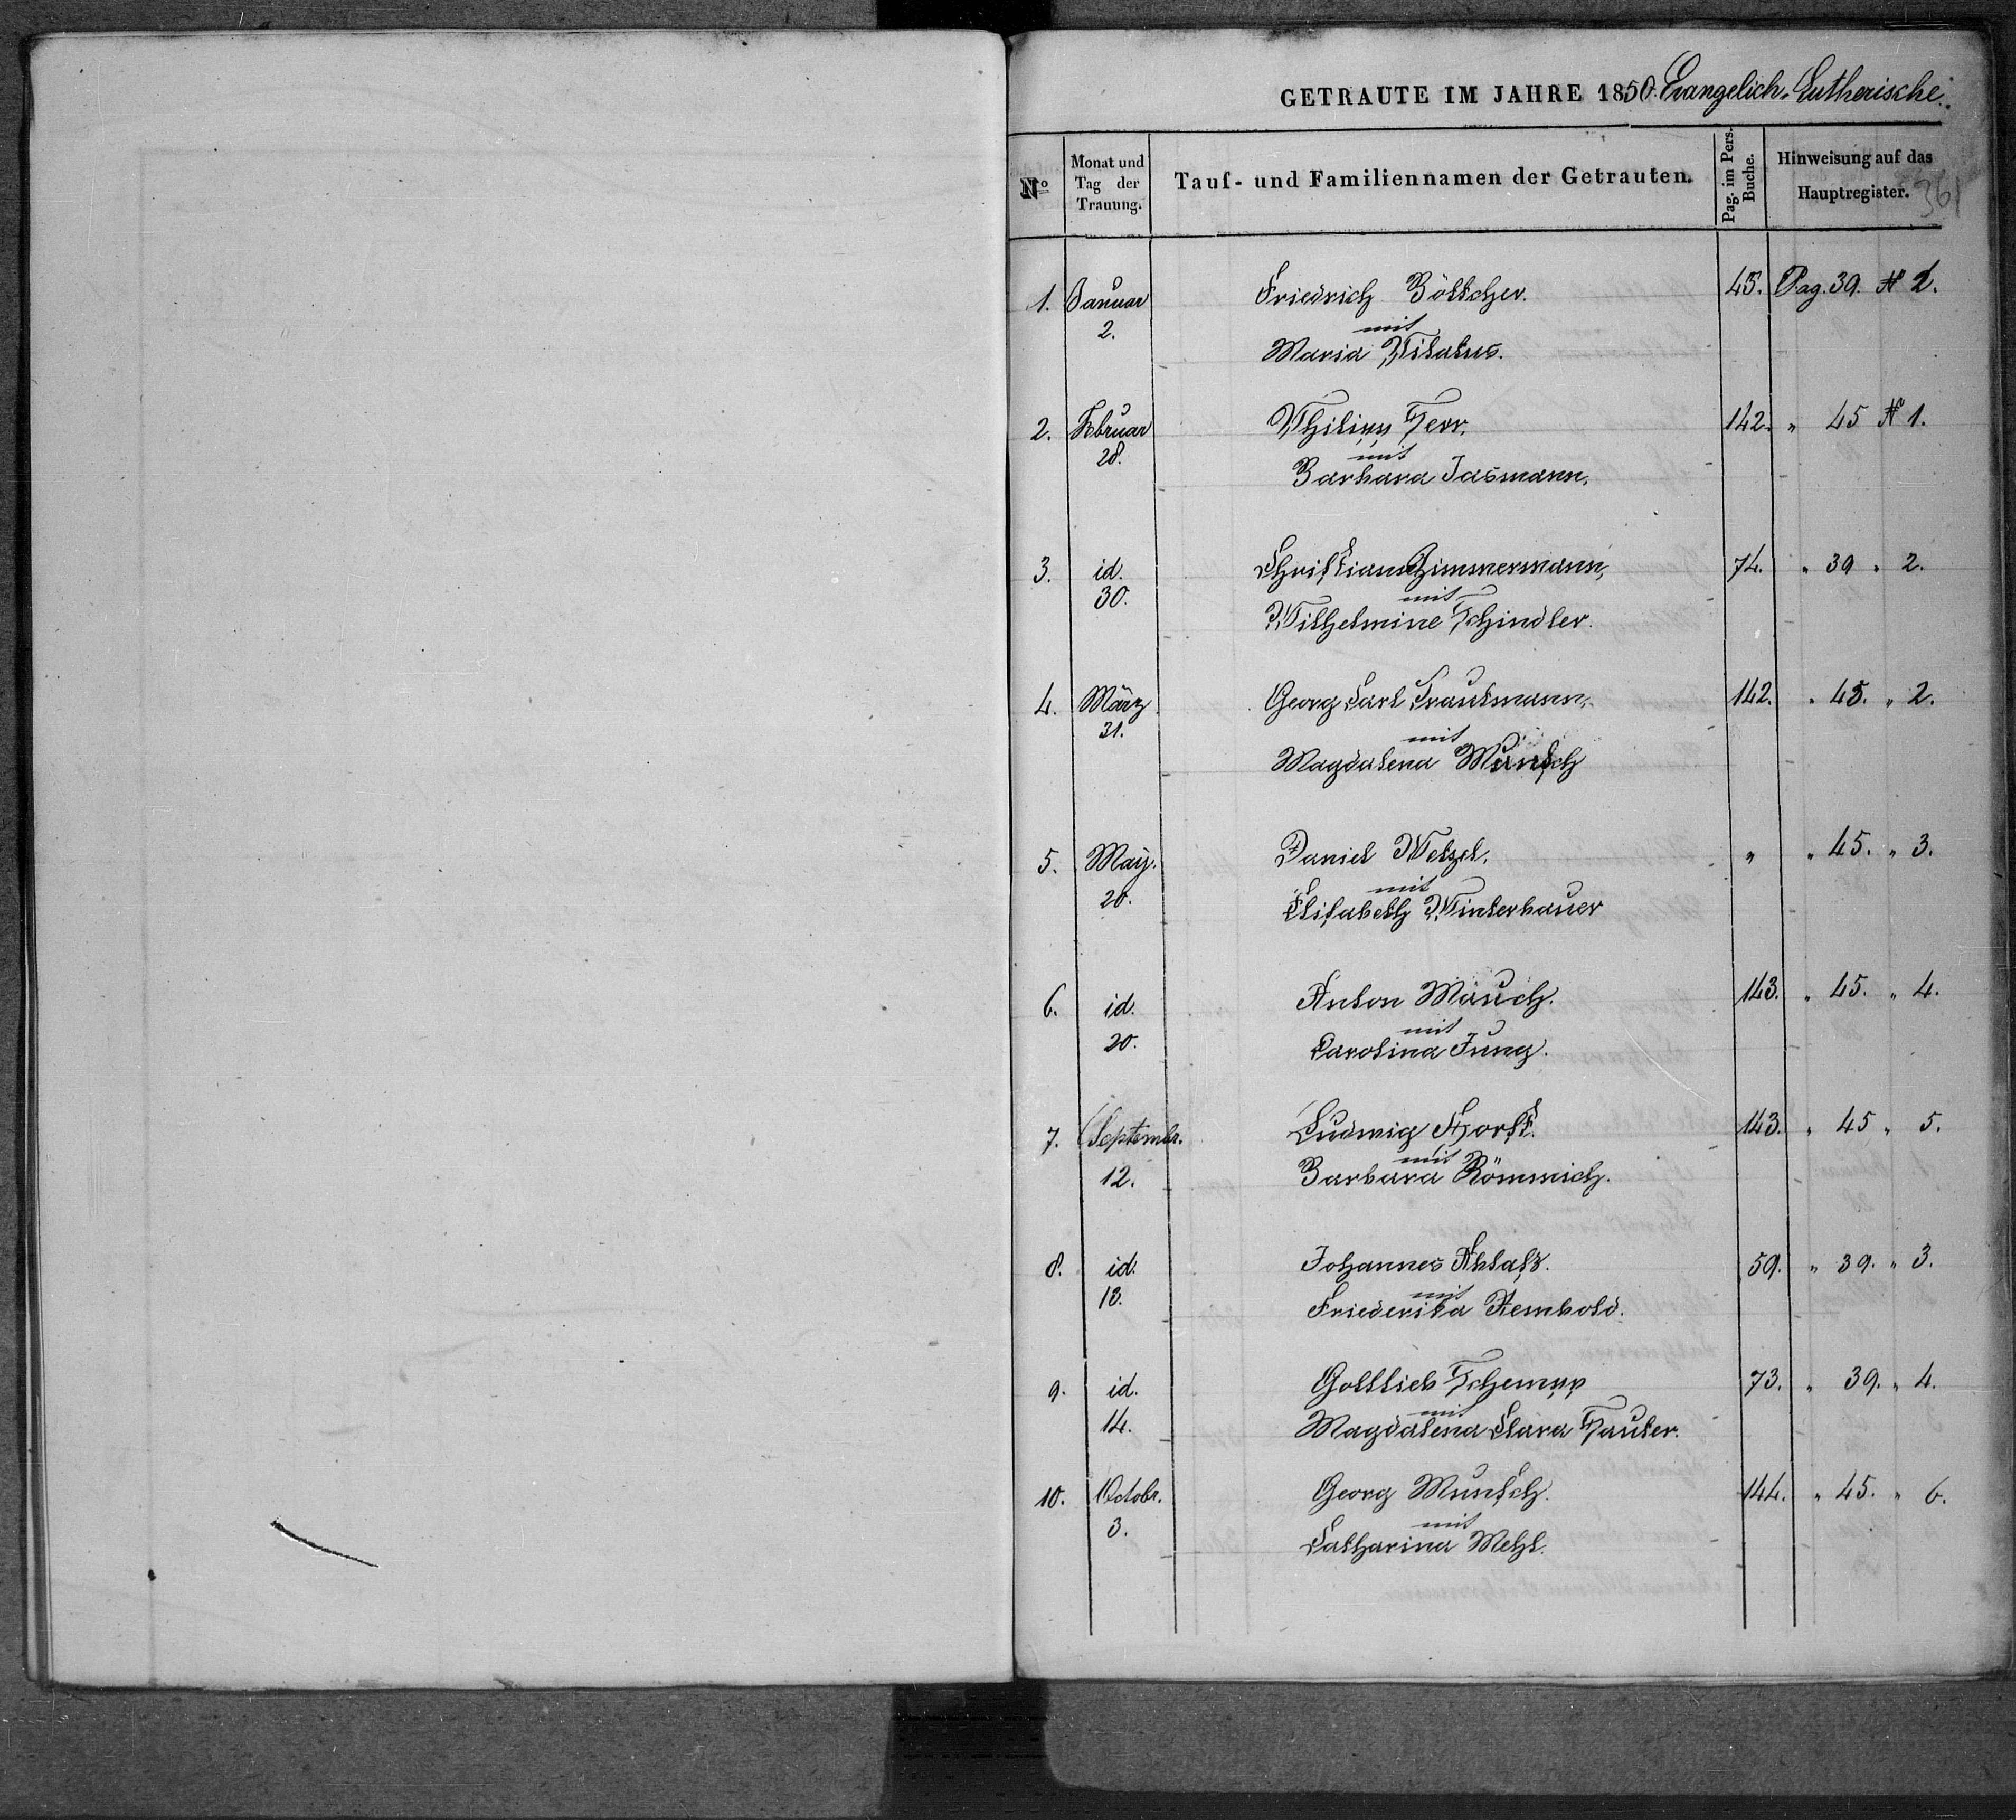 GETRAUTE IM JAHRE 1850. Evangelich-Lutherische.
No Monat und Tag der Trauung. Tauf- und Familiennamen der Getrauten. Pag. im Pers. Buche. Hinweisung auf das Hauptregister.
361
1. Januar Friedrich Böttcher. 45. Pag. 39. No 1.
2. mit
Maria
2. Februar Philipp Herr, 142. " 45 No 1.
28. mit
Barbara Jasmann.
3. id. Christian Zimmermann, 74. " 39 " 2.
30. mit
Wilhelmine Schindler.
4. März Georg Carl Trautmann, 142. " 45. " 2.
31. mit
Magdalena Münsch
5. May. Daniel Wetzel. " " 45. " 3.
20. mit
Elisabeth Winterbauer
6. id. Anton Mauch. 143. " 45. " 4.
20. mit
Carolina Jung.
7. Septembr. Ludwig Horst. 143. " 45 " 5.
12. mit
Barbara Römmich.
8. id. Johannes 59. " 39. " 3.
13. mit
Friederika Rembold.
9. id. Gottlieb Schempp 73. " 39. " 4.
14. mit
Magdalena Clara Sauter.
10. Octobr. Georg Munsch. 144. " 45. " 6.
3. mit
Catharina Mehl.